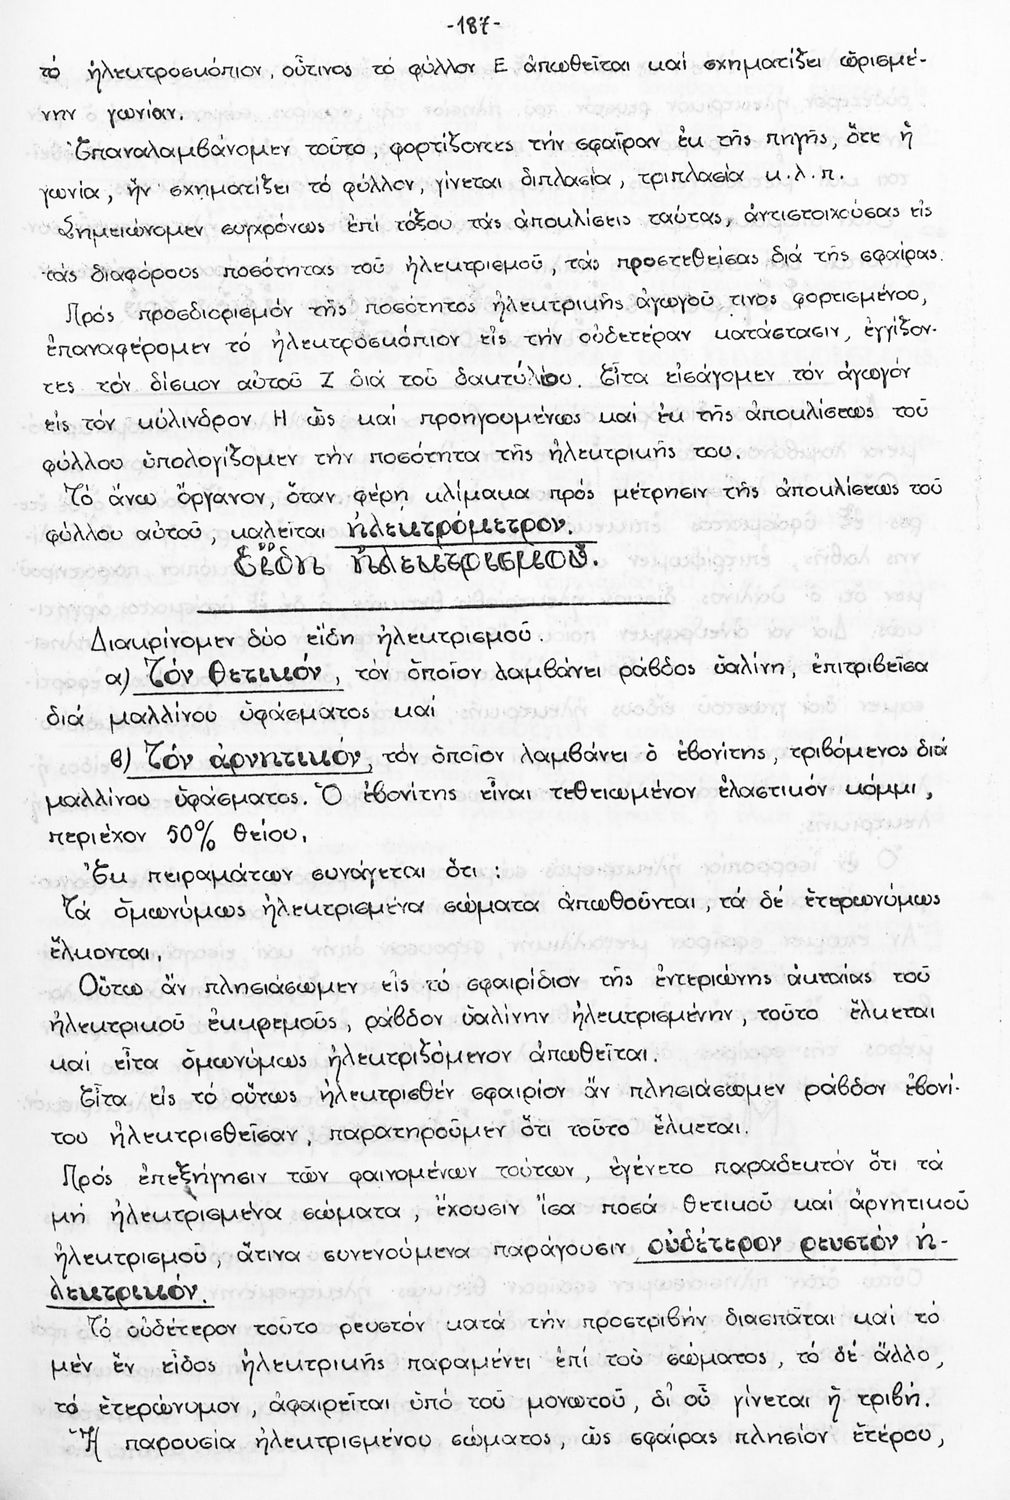 -187-
τό ἠλεκτροσκόπιον, οὗτινος τό φύλλον Ε ἀπωθεῖται καί σχηματίζει ὡρισμέ-
νην γωνίαν.
Ἐπαναλαμβάνομεν τοῦτο, φορτίζοντες τήν σφαῖραν ἐκ τῆς πηγῆς, ὅτε ἡ
γωνία, ἥν σχηματίζει τό φύλλον, γίνεται διπλασία, τριπλασία κ.λ.π.
Σημειώνομεν συγχρόνως ἐπί τόξου τάς ἀποκλίσεις ταύτας, ἀντιστοιχούσας εἰς
τάς διαφόρους ποσότητας τοῦ ἠλεκτρισμοῦ, τάς προστεθείσας διά τῆς σφαίρας.
Πρός προσδιορισμόν τῆς ποσότητος ἠλεκτρικῆς ἀγωγοῦ τινος φορτισμένου,
ἐπαναφέρομεν τό ἠλεκτροσκόπιον εἰς τήν οὐδετέραν κατάστασιν, ἐγγίζον-
τες τόν δίσκον αὐτοῦ Ζ διά τοῦ δακτύλου. Εἶτα εἰσάγομεν τόν ἀγωγόν
εἰς τόν κύλινδρον Η ὡς καί προηγουμένως καί ἐκ τῆς ἀποκλίσεως τοῦ
φύλλου ὑπολογίζομεν τήν ποσότητα τῆς ἠλεκτρικῆς του.
Τό ἄνω ὄργανον, ὅταν φέρῃ κλίμακα πρός μέτρησιν τῆς ἀποκλίσεως τοῦ
φύλλου αὐτοῦ, καλεῖται ἠλεκτρόμετρον.
Εἴδη ἠλεκτρισμοῦ.
Διακρίνομεν δύο εἴδη ἠλεκτρισμοῦ.
α) Τόν θετικόν, τόν ὁποῖον λαμβάνει ράβδος ὑαλίνη, ἐπιτριβεῖσα
διά μαλλίνου ὑφάσματος καί
β) Τόν ἀρνητικόν, τόν ὁποῖον λαμβάνει ὁ ἐβονίτης, τριβόμενος διά
μαλλίνου ὑφάσματος. Ὁ ἐβονίτης εἶναι τεθειωμένον ἐλαστικόν κόμμι,
περιέχον 50% θείου.
Ἐκ πειραμάτων συνάγεται ὅτι :
Τά ὁμωνύμως ἠλεκτρισμένα σώματα ἀπωθοῦνται, τά δέ ἑτερωνύμως
ἕλκονται.
Οὕτω ἄν πλησιάσωμεν εἰς τό σφαιρίδιον τῆς ἐντεριώνης ἀκταίας τοῦ
ἠλεκτρικοῦ ἐκκρεμοῦς, ράβδον ὑαλίνην ἠλεκτρισμένην, τοῦτο ἕλκεται
καί εἶτα ὁμωνύμως ἠλεκτριζόμενον ἀπωθεῖται.
Εἶτα εἰς τό οὕτως ἠλεκτρισθέν σφαιρίον ἄν πλησιάσωμεν ράβδον ἐβονί-
του ἠλεκτρισθεῖσαν, παρατηροῦμεν ὅτι τοῦτο ἕλκεται.
Πρός ἐπεξήγησιν τῶν φαινομένων τούτων, ἐγένετο παραδεκτόν ὅτι τά
μή ἠλεκτρισμένα σώματα, ἔχουσιν ἴσα ποσά θετικοῦ καί ἀρνητικοῦ
ἠλεκτρισμοῦ, ἅτινα συνενούμενα παράγουσιν οὐδέτερον ρευστόν ἠ-
λεκτρικόν.
Τό οὐδέτερον τοῦτο ρευστόν κατά τήν προστριβήν διασπᾶται καί τό
μέν ἕν εἶδος ἠλεκτρικῆς παραμένει ἐπί τοῦ σώματος, τό δέ ἄλλο,
τό ἑτερώνυμον, ἀφαιρεῖται ὑπό τοῦ μονωτοῦ, δι' οὗ γίνεται ἡ τριβή.
Ἡ παρουσία ἠλεκτρισμένου σώματος, ὡς σφαίρας πλησίον ἑτέρου,